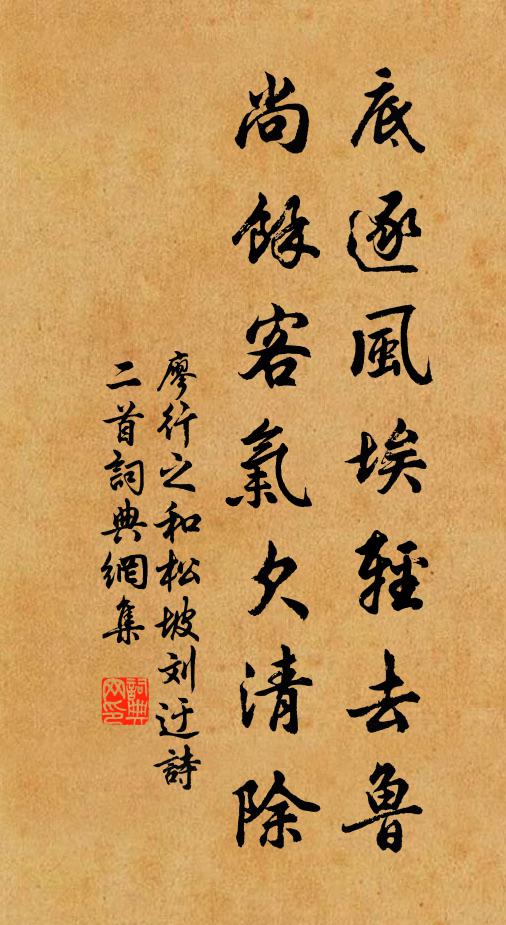 底逐風埃輕去魯
尚餘客氣欠清除
廖行之和松坡刘迂詩
二首詞典網集
詞典
网印